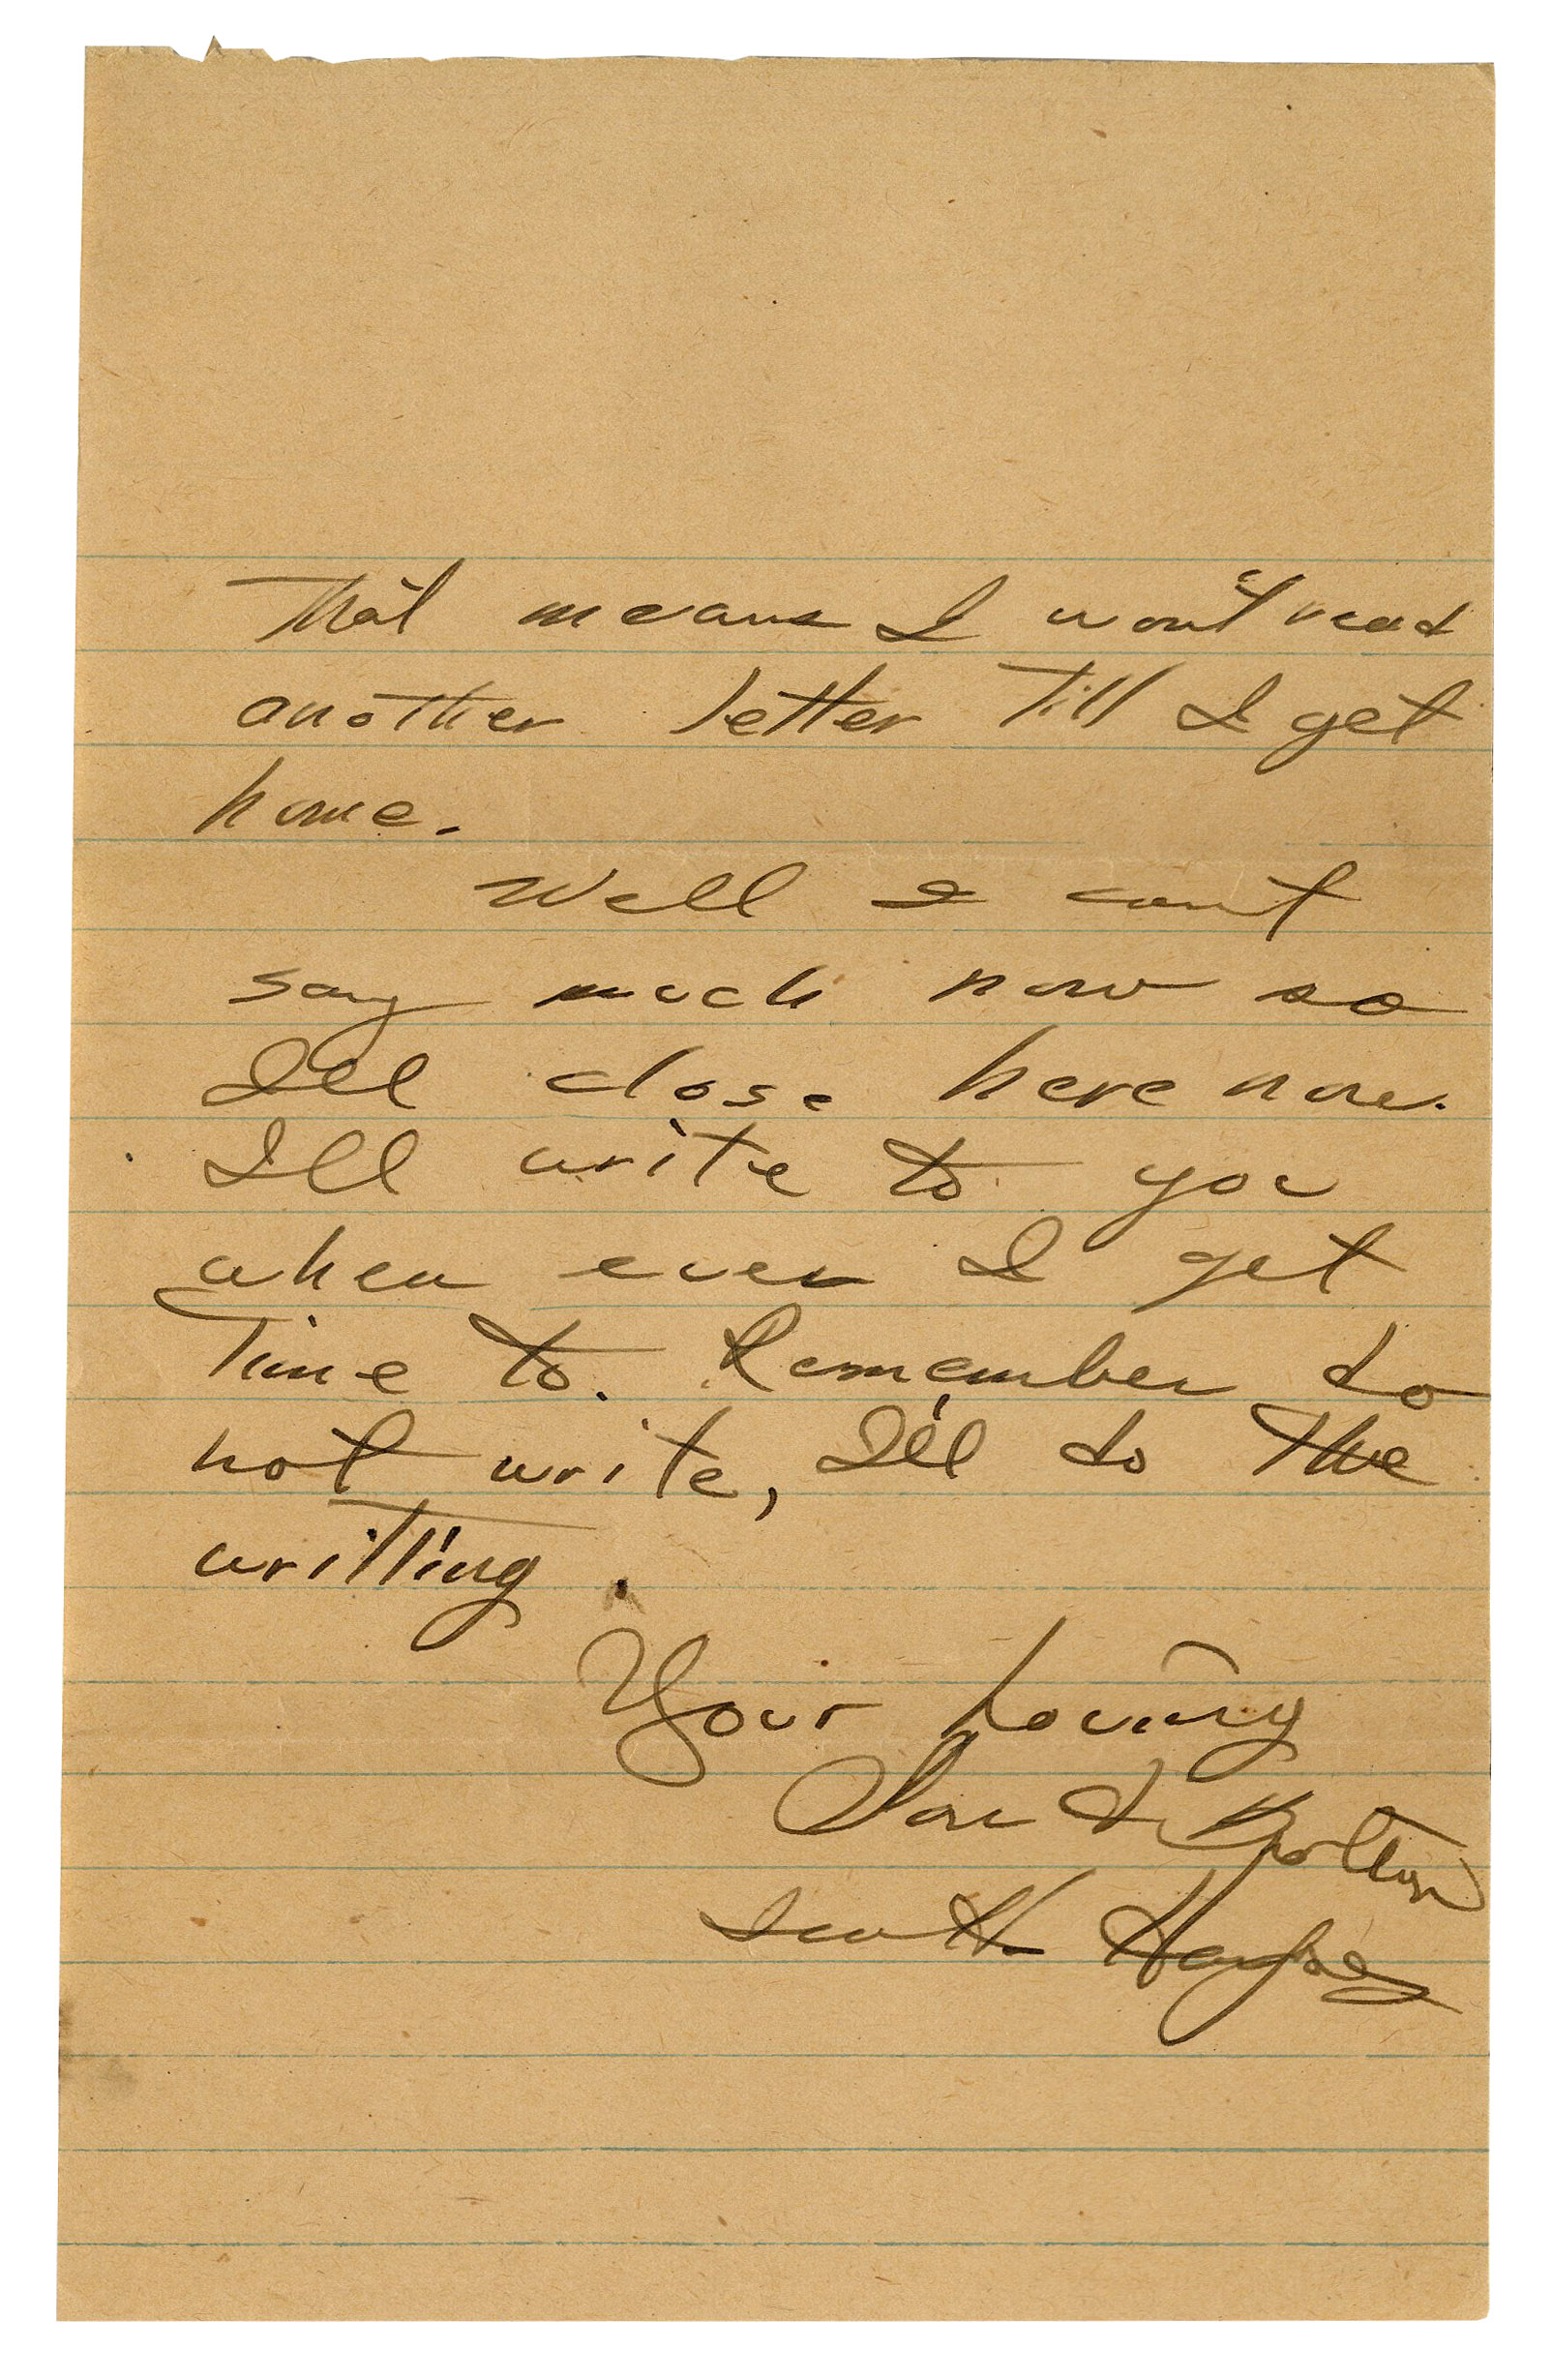 That means I won't read
another letter till I get
home.
Well I can't
say much now so
I'll close here now.
I'll write to you
when ever I get
time to. Remember do
not write, I'll do the
writting.
Your Loving
Son & Brother
Scott